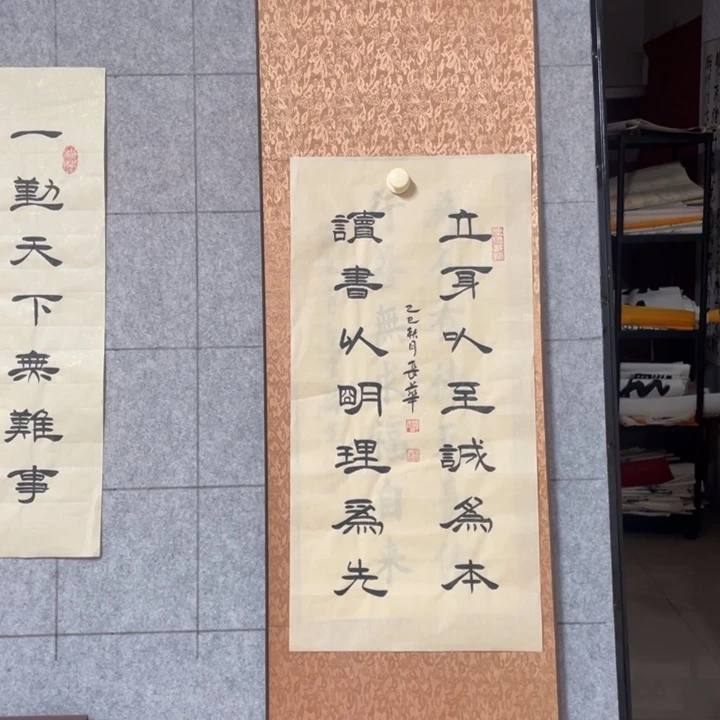 立身以至誠為本
讀書以明理為先
乙巳秋月長華
一勤天下無難事